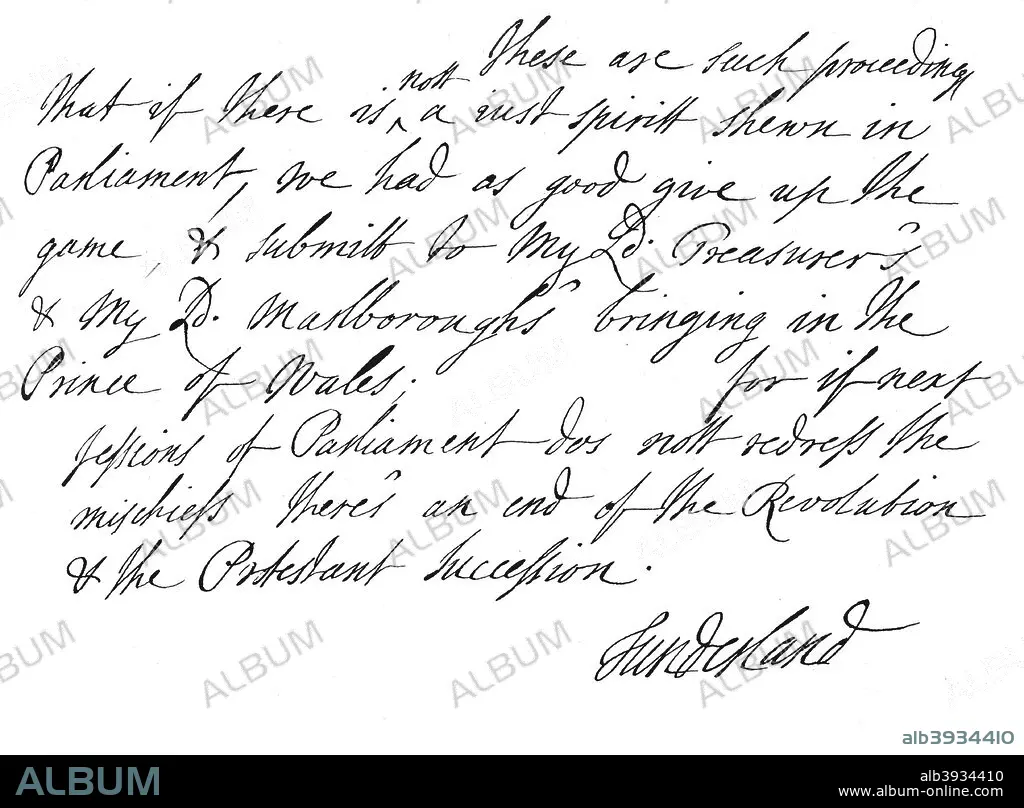 These are such proceedings
that if there is nott a iust spiritt shewn in
Parliament, we had as good give up the
game, & submitt to My Ld. Treasurer's
& My Ld. Marlborough's bringing in the
Prince of Wales; for if next
sessions of Parliament dos nott redress the
mischiefs there's an end of the Revolution
& the Protestant succession.
Sunderland
alb3934410
ALBUM
alb3934410
www.album-online.com